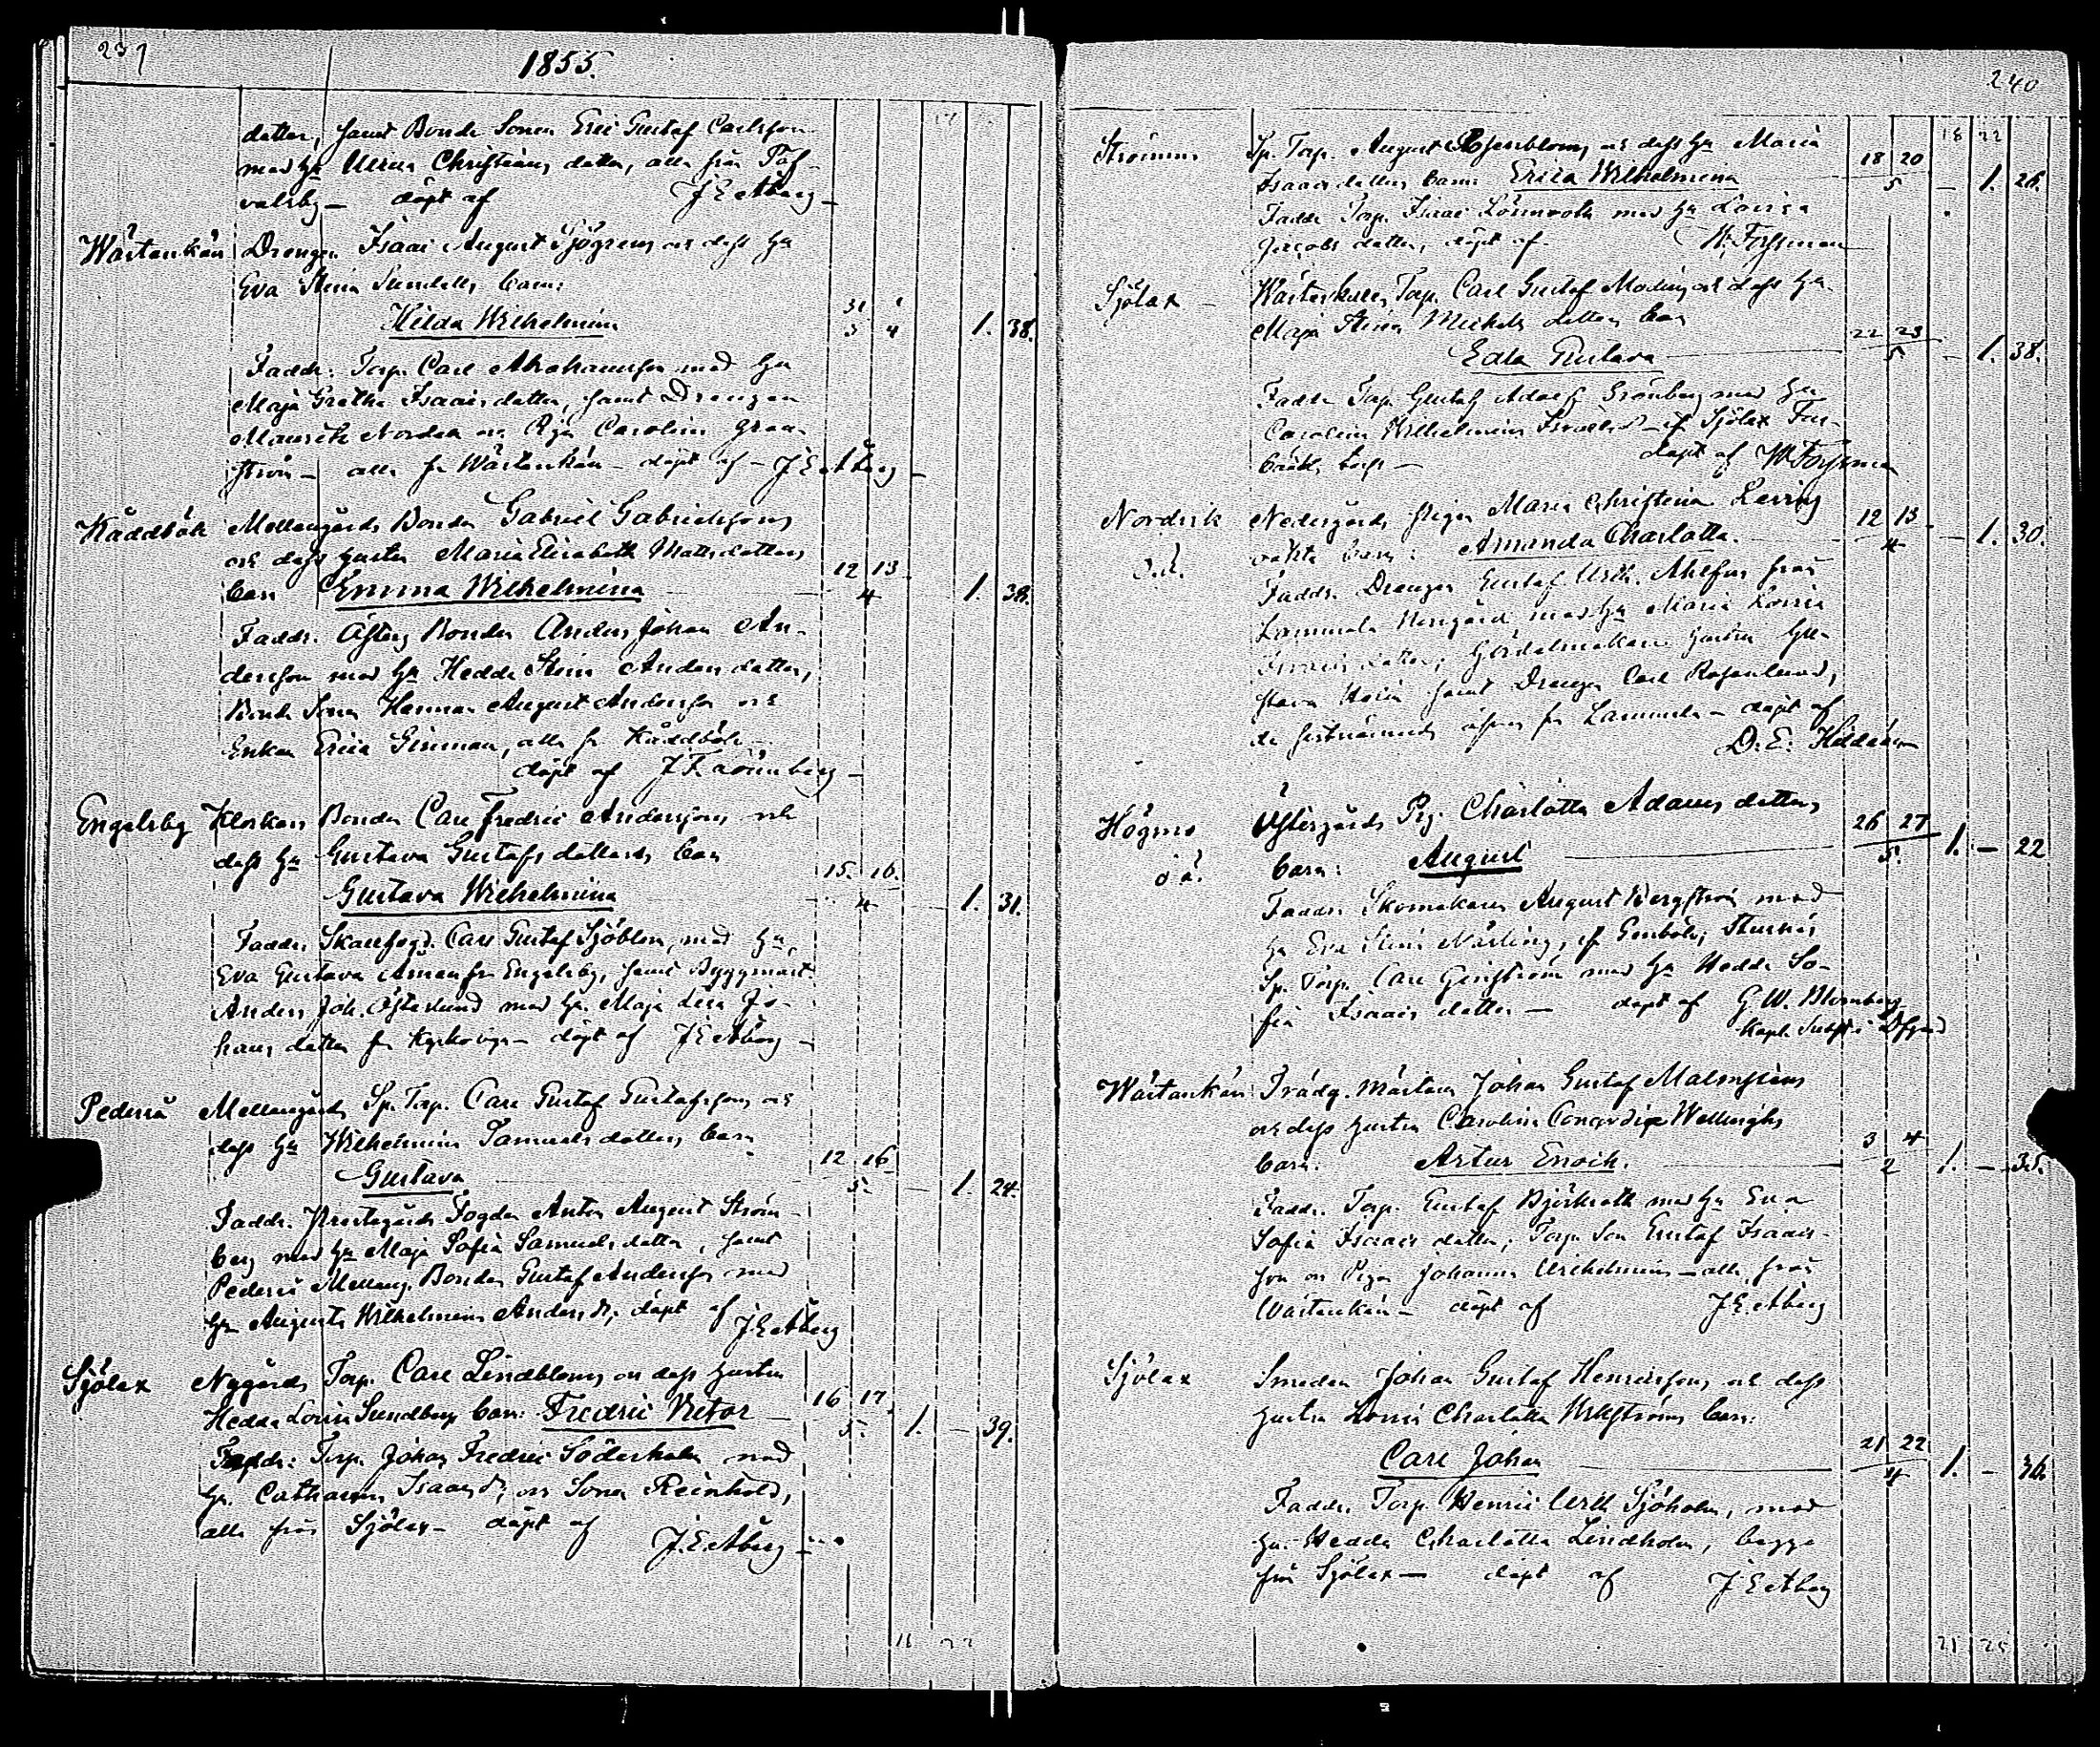 239
1855.
datter, samt Bonde Sonen Eric Gustaf Carlsson
med Hu Christians datter, alla från Taf-
valsby – döpt af J E Åberg –
Wästankärr Drengen Isaac August Sjögrens och dess Hu
Eva Stina Sundells barn:
Hilda Wilhelmina 31/3 1/4 1. 38.
Faddr. Torp. Carl Abrahamsson med Hu
Maja Gretha Isaacs datter, samt Drengen
Nordell och Pigan Carolina Gran-
ström – alla fr Wästankärr – döpt af – J E Åberg –
Kåddböle Mellangårds Bonden Gabriel Gabrielssons
och dess hustru Maria Elisabeth Mattsdotters
barn Emma Wilhelmina 12 13/4 1. 38.
Faddr. Österg Bonden Anders Johan An-
dersson med Hu Hedda Stina Anders datter,
Bonde Sonen Herman August Andersson och
Enkan Erica Ginman, alla fr Kåddböle –
döpt af J F Grönnberg –
Engelsby Klockars Bonden Carl Fredric Anderssons och
dess Hu Gustava Gustafs datters barn
Gustava Wilhelmina 15. 16./4 1. 31.
Faddr. Carl Gustaf Sjöblom, med Hu
Eva Gustava Åman fr Engelsby, samt Byggmäst.
Anders Joh. Österlund med Hu Maja Lisa Jo-
hans datter fr – döpt af J E Åberg –
Pederså Mellangårds Sp. Torp. Carl Gustaf Gustafssons och
dess Hu Wilhelmina Samuels datters barn
Gustava 12 16/5. – 1. 24.
Faddr. Prestegårds Fogden Anton August Ström-
berg med Hu Maja Sofia Samuels datter, samt
Pederså Mellang. Bonden Gustaf Andersson med
Hu Augusta Wilhelmina Anders dr, döpt af J E Åberg
Sjölax Nygårds Torp. Carl Lindbloms och dess hustru
Hedda Lovisa Sundbergs barn: Fredric Victor 16 17./5. 1. – 39.
Faddr: Torp. Johan Fredric Söderholm med
Hu. Catharina Isaacs dr, och Sonen Reinhold,
alla från Sjölax – döpt af J. E Åberg –
240
18 22
Strömma Sp. Torp. August Rosenbloms och dess Hu Maria
Isaacs datters barn: Erica Wilhelmina 18 20/5 – 1. 26.
Faddr Torp. Isaac Lönnroth med Hu Lovisa
Jacobs datter, döpt af W. Forssman
Sjölax – Torp. Carl Gustaf Modins och dess Hu
Maja Stina Michels datters barn
Edla Gustava 22 23/5 – 1. 38.
Faddr Torp. Gustaf Adolf Grönberg med Hu
Carolina Wilhelmina – fr Sjölax
döpt af W Forssman
Nordvik Nedergårds Pigan Maria Christina Lerins
o.ä. oäkta barn: Amanda Charlotta. 12 13/4 – 1. 30.
Faddr. Drengen Gustaf Ahlfors från
Lammala Norrgård med Hu Maria Lovisa
datter, Hustru Gu-
stava samt Drengen Carl Rosenlund,
de fr Lammala – döpt af
D. E. Hedden
Högmo Östergårds Pig. Charlotta Adams datters
o ä. barn: August 26 27/5. 1. – 22
Faddr. Skomakaren August Bergström med
Hu Eva Stina Närling, fr Genböle,
Sp. Torp. Carl med Hu Hedda So-
fia Isaacs datter – döpt af G. W. Blomberg
Kapl.
Wästankärr Trädg. Mästaren Johan Gustaf Malmstens
och dess hustru Carolina Concordia Wellinghs
barn: Artur Enoch. 3 4/2 1. – 35.
Faddr. Torp. Gustaf Björkroth med Hu Eva
Sofia Isaacs datter; Torp. Son Gustaf Isaacs-
son och Pigan Johanna Wilhelmina – alla från
Wästankärr – döpt af J. E. Åberg
Sjölax Smeden Johan Gustaf Henricssons och dess
hustru Lovisa Charlotta barn:
Carl Johan 21 22/4 1. – 36.
Faddr. Torp. Henric Sjöholm, med
Hu. Hedda Charlotta Lindholm, begge
från Sjölax – döpt af J. E Åberg
21 25